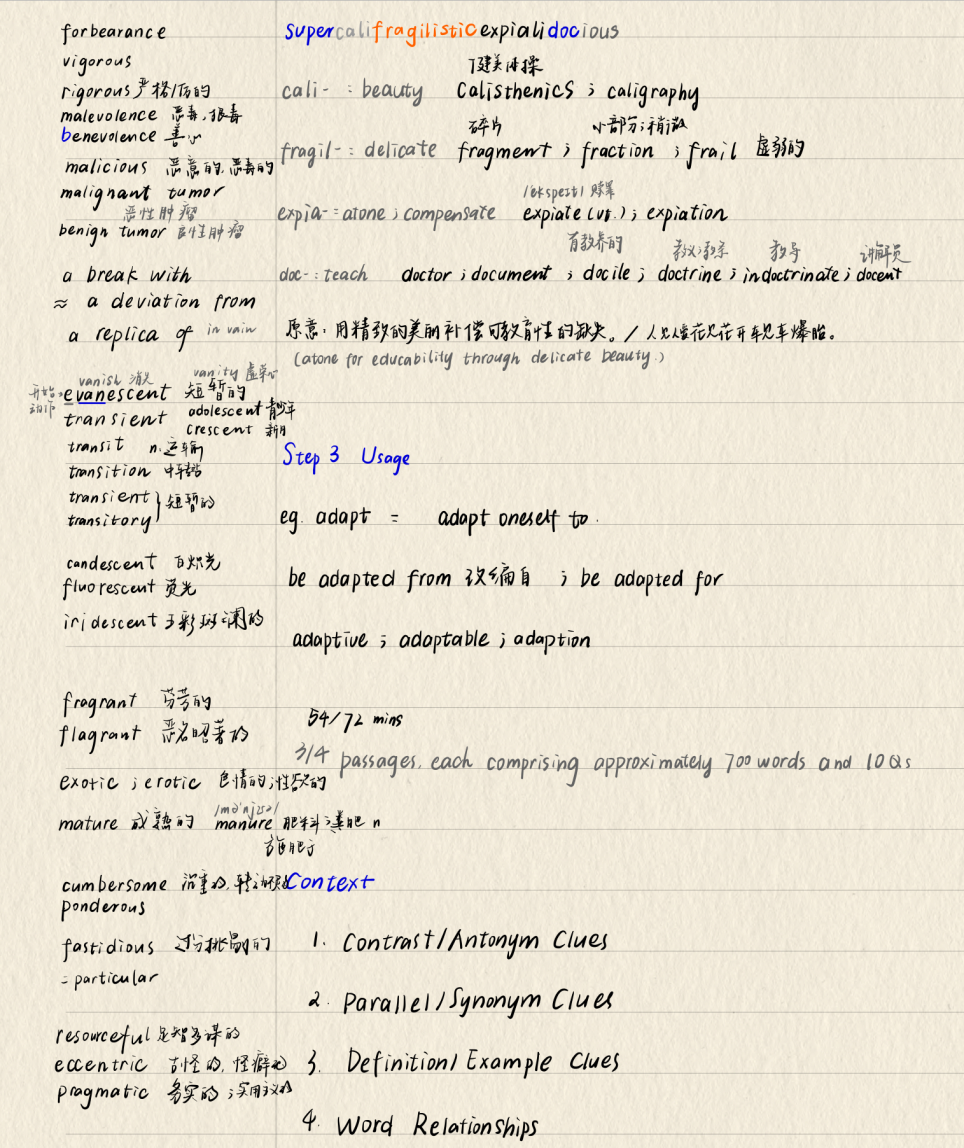 forbearance
vigorous
rigorous 严格/厉的
malevolence 恶毒,狠毒
benevolence 善心
malicious 恶意的,恶毒的
malignant tumor
恶性肿瘤
benign tumor 良性肿瘤
a break with
≈ a deviation from
a replica of in vain
vanish 消失 vanity 虚荣心
开始 evanescent 短暂的
动作
transient adolescent 青少年
crescent 新月
transit n.运输
transition 中转站
transient } 短暂的
transitory
candescent 白炽光
fluorescent 荧光
iridescent 五彩斑斓的
fragrant 芬芳的
flagrant 恶名昭著的
exotic ; erotic 色情的;性欲的
mature 成熟的 manure 肥料;粪肥 n
施肥于
cumbersome 沉重的,
ponderous
fastidious 过分挑剔的
= particular
resourceful 足智多谋的
eccentric 古怪的,怪癖的
pragmatic 务实的;实用主义的
supercalifragilisticexpialidocious
健美体操
cali- : beauty Calisthenics ; caligraphy
碎片 小部分;稍微
fragil- : delicate fragment ; fraction ; frail 虚弱的
赎罪
expia- = atone ; compensate expiate (vt.) ; expiation
有教养的 教义;教条 教导 讲解员
doc- : teach doctor ; document ; docile ; doctrine ; indoctrinate ; docent
原意:用精致的美丽补偿可教育性的缺失。/ 人见人爱花见花开车见车爆胎。
(atone for educability through delicate beauty.)
Step 3 Usage
eg. adapt = adapt oneself to.
be adapted from 改编自 ; be adapted for
adaptive ; adaptable ; adaption
54/72 mins
3/4 passages, each comprising approximately 700 words and 10 Qs
Context
1. Contrast/Antonym Clues
2. Parallel/Synonym Clues
3. Definition/Example Clues
4. Word Relationships